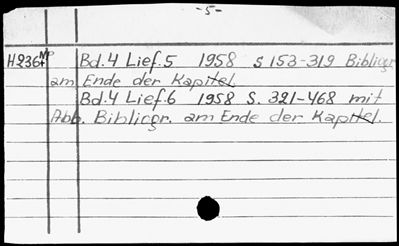 -5-
H236 NP Bd.4 Lief.5 1958 S 153-319 Bibliogr
am Ende der Kapitel
Bd.4 Lief.6 1958 S. 321-468 mit
Abb. Bibliogr. am Ende der Kapitel.